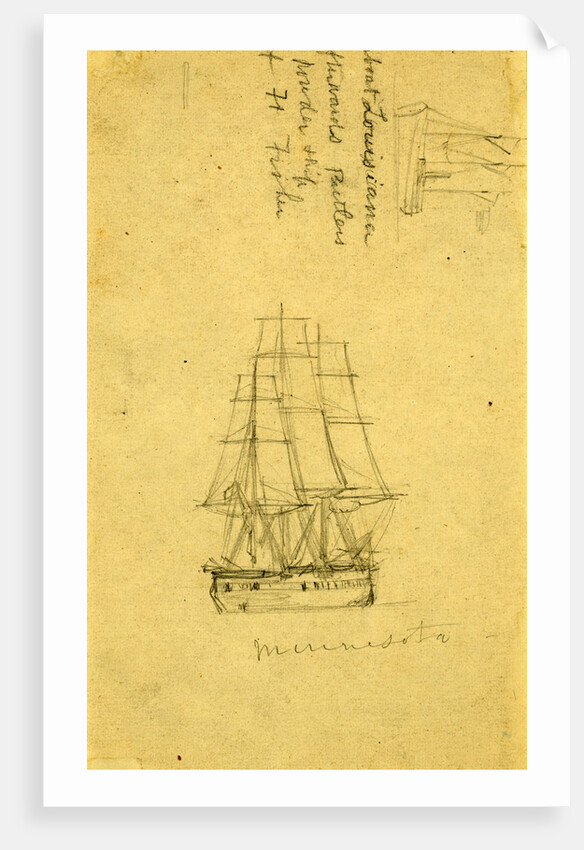 boat Louisiana
Butlers
powder ship
Ft Fisher
Minnesota